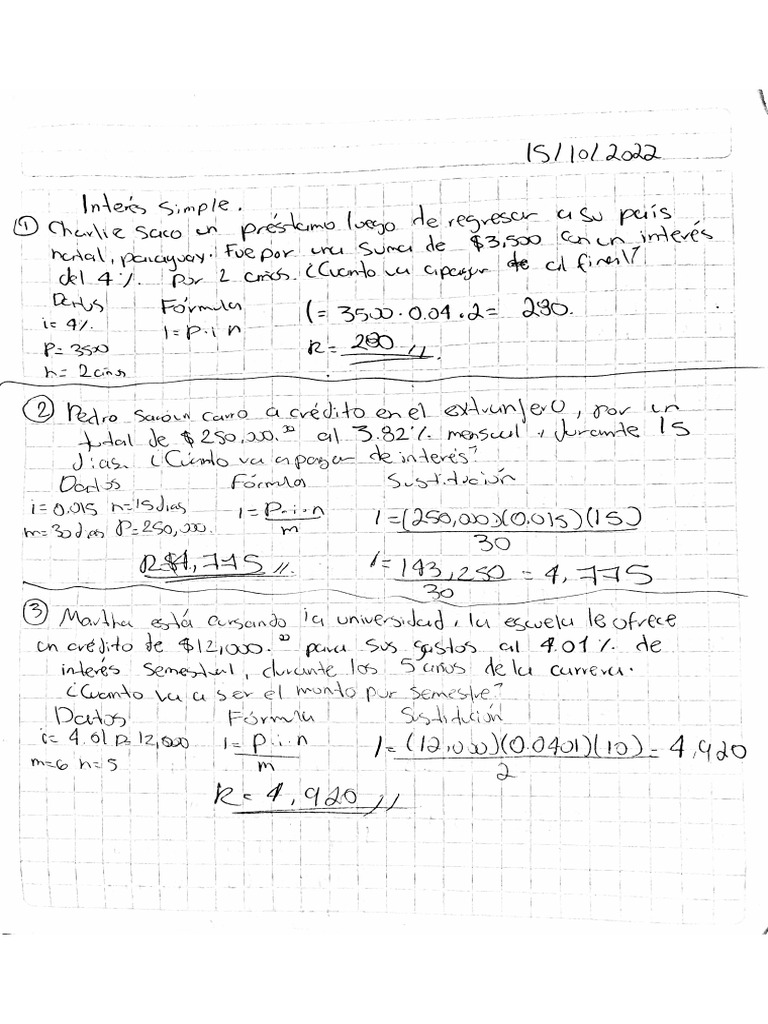 15/10/2022
Interés simple.
① Charlie saco un préstamo luego de regresar a su país
natal, paraguay. Fue por una suma de $3,500 con un interés
del 4%. por 2 años. ¿Cuanto va a pagar al final?
Datos Fórmula I = 3500 · 0.04 · 2 = 280.
i = 4% I = p · i n
P = 3500 R = 280 //.
n = 2 años
② Pedro saco un carro a crédito en el extranjero, por un
total de $250,000.00 al 3.82% mensual, durante 15
dias. ¿Cúanto va a pagar de interés?
Datos Fórmula Sustitución
i = 0.015 n = 15 dias I = P · i · n / m I = (250,000)(0.015)(15) / 30
m = 30 dias P = 250,000.
R $4,775 //. I = 143,250 / 30 = 4,775
③ Martha está cursando la universidad, la escuela le ofrece
un crédito de $12,000.00 para sus gastos al 4.01% de
interés semestral, durante los 5 años de la carrera.
¿Cuanto va a ser el monto por semestre?
Datos Fórmula Sustitución
i = 4.01 P = 12,000 I = p · i · n / m I = (12,000)(0.0401)(10) / 2 = 4,920
m = 6 n = 5
R = 4,920 //